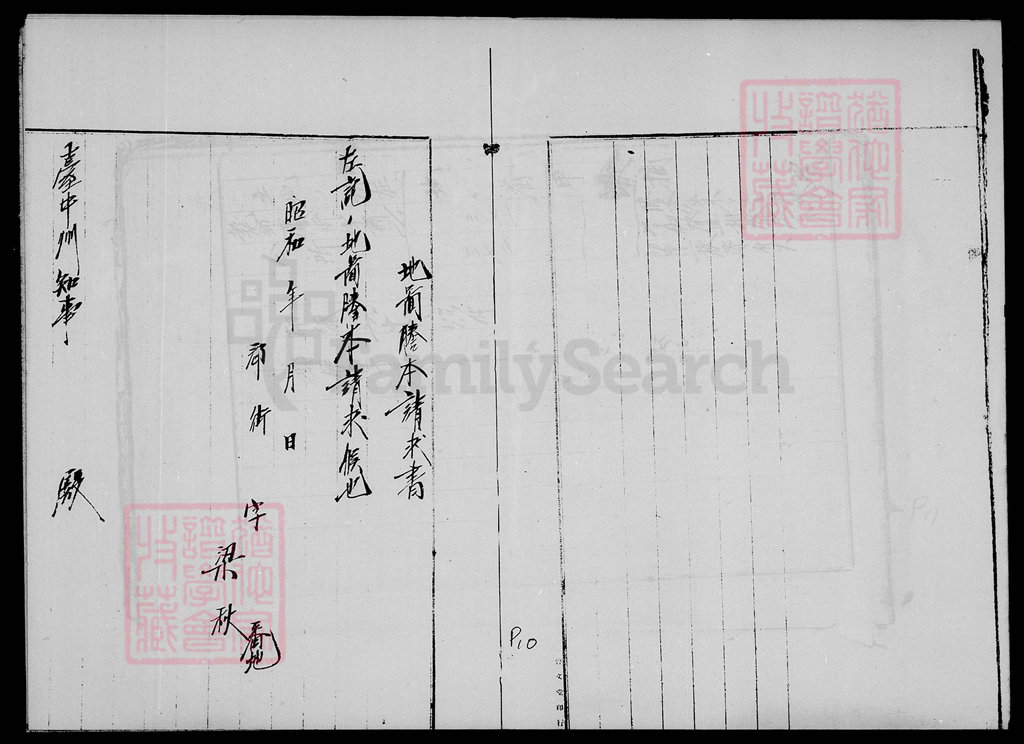 地啚謄本請求書
左記ノ地啚謄本請求候也
昭和 年 月 日
郡 街 字 番地
梁秋
臺中州知事 殿
P10
P11
FamilySearch